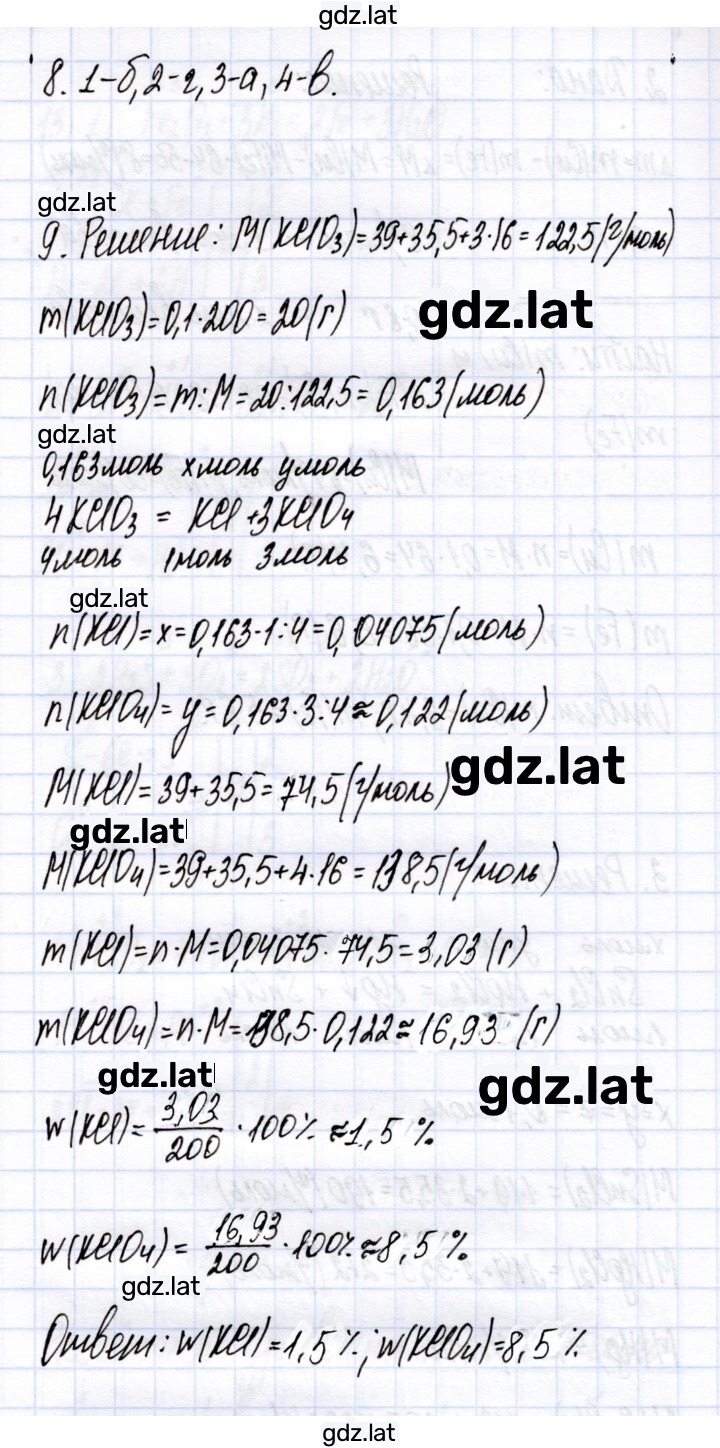 gdz.lat
8. 1-б, 2-г, 3-а, 4-в.
gdz.lat
9. Решение: M(KClO₃)=39+35,5+3·16=122,5(г/моль)
m(KClO₃)=0,1·200=20(г)
gdz.lat
n(KClO₃)=m:M=20:122,5=0,163(моль)
gdz.lat
0,163моль хмоль умоль
4KClO₃ = KCl+3KClO₄
4моль 1моль 3моль
gdz.lat
n(KCl)=x=0,163·1:4=0,04075(моль)
n(KClO₄)=y=0,163·3:4≈0,122(моль)
gdz.lat
M(KCl)=39+35,5=74,5(г/моль)
gdz.lat
M(KClO₄)=39+35,5+4·16=138,5(г/моль)
m(KCl)=n·M=0,04075·74,5=3,03(г)
m(KClO₄)=n·M=138,5·0,122≈16,93 (г)
gdz.lat
gdz.lat
w(KCl)=3,03/200·100%≈1,5%
w(KClO₄)=16,93/200·100%≈8,5%
gdz.lat
Ответ: w(KCl)=1,5%; w(KClO₄)=8,5%
gdz.lat